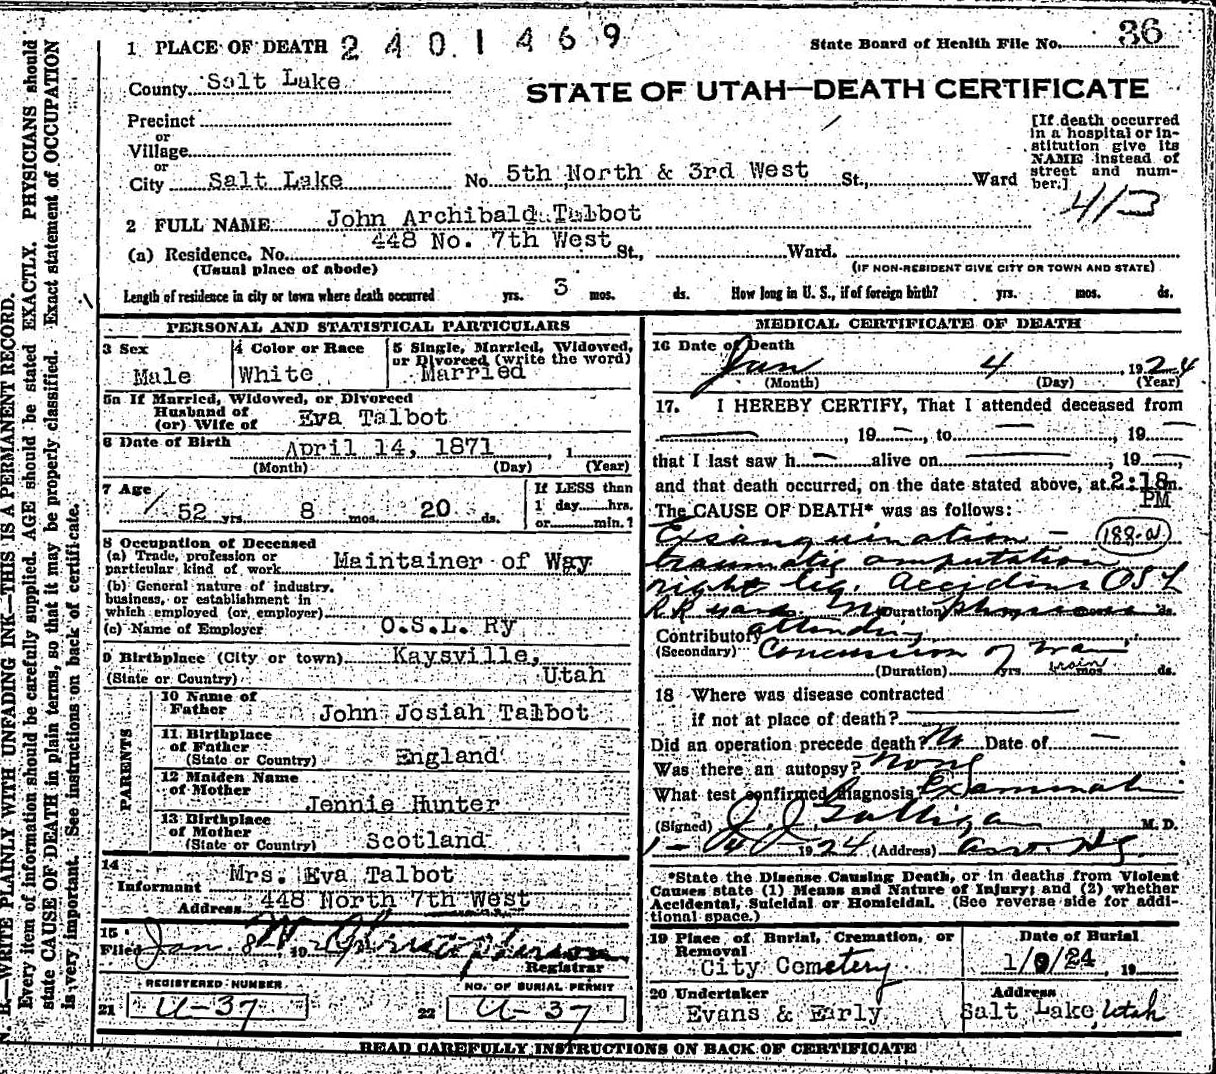 N. B.—WRITE PLAINLY WITH UNFADING INK—THIS IS A PERMANENT RECORD.
Every item of information should be carefully supplied. AGE should be stated EXACTLY. PHYSICIANS should
state CAUSE OF DEATH in plain terms, so that it may be properly classified. Exact statement of OCCUPATION
is very important. See instructions on back of certificate.
1 PLACE OF DEATH 2401469
State Board of Health File No. 36
County Salt Lake
STATE OF UTAH—DEATH CERTIFICATE
Precinct
or
Village
or
City Salt Lake No. 5th North & 3rd West St., Ward
[If death occurred
in a hospital or in-
stitution give its
NAME instead of
street and num-
ber.]
2 FULL NAME John Archibald Talbot
(a) Residence. No. 448 No. 7th West St., Ward.
(Usual place of abode) (IF NON-RESIDENT GIVE CITY OR TOWN AND STATE)
Length of residence in city or town where death occurred yrs. 3 mos. ds. How long in U. S., if of foreign birth? yrs. mos. ds.
PERSONAL AND STATISTICAL PARTICULARS
3 Sex Male
4 Color or Race White
5 Single, Married, Widowed,
or Divorced (write the word)
Married
5a If Married, Widowed, or Divorced
Husband of
(or) Wife of Eva Talbot
6 Date of Birth April 14, 1871, 1
(Month) (Day) (Year)
7 Age
52 yrs. 8 mos. 20 ds.
If LESS than
1 day hrs.
or min.?
8 Occupation of Deceased
(a) Trade, profession or
particular kind of work Maintainer of Way
(b) General nature of industry,
business, or establishment in
which employed (or employer)
(c) Name of Employer O.S.L. Ry
9 Birthplace (City or town) Kaysville,
(State or Country) Utah
PARENTS
10 Name of
Father John Josiah Talbot
11 Birthplace
of Father
(State or Country) England
12 Maiden Name
of Mother
Jennie Hunter
13 Birthplace
of Mother
(State or Country) Scotland
14
Informant Mrs. Eva Talbot
Address 448 North 7th West
15
Filed Jan. 8 19 Registrar
REGISTERED NUMBER
21 U-37
NO. OF BURIAL PERMIT
22 U-37
MEDICAL CERTIFICATE OF DEATH
16 Date of Death
Jan 4, 1924
(Month) (Day) (Year)
17. I HEREBY CERTIFY, That I attended deceased from
, 19 , to , 19
that I last saw h alive on , 19
and that death occurred, on the date stated above, at 2:18 m.
PM
The CAUSE OF DEATH* was as follows:
Exsanguination – 188-a
traumatic amputation
right leg. Accident OSL
RR yard. No physician
(Duration) ds.
attending
Contributory
(Secondary) Concussion of brain
(Duration) yrs. mos. ds.
18 Where was disease contracted
if not at place of death?
Did an operation precede death? No Date of –
Was there an autopsy? None
What test confirmed diagnosis
(Signed) J. J. Galligan M. D.
19 24 (Address)
*State the Disease Causing Death, or in deaths from Violent
Causes state (1) Means and Nature of Injury; and (2) whether
Accidental, Suicidal or Homicidal. (See reverse side for addi-
tional space.)
19 Place of Burial, Cremation, or
Removal
City Cemetery
Date of Burial
1/9/24, 19
20 Undertaker
Evans & Early
Address
Salt Lake, Utah
READ CAREFULLY INSTRUCTIONS ON BACK OF CERTIFICATE